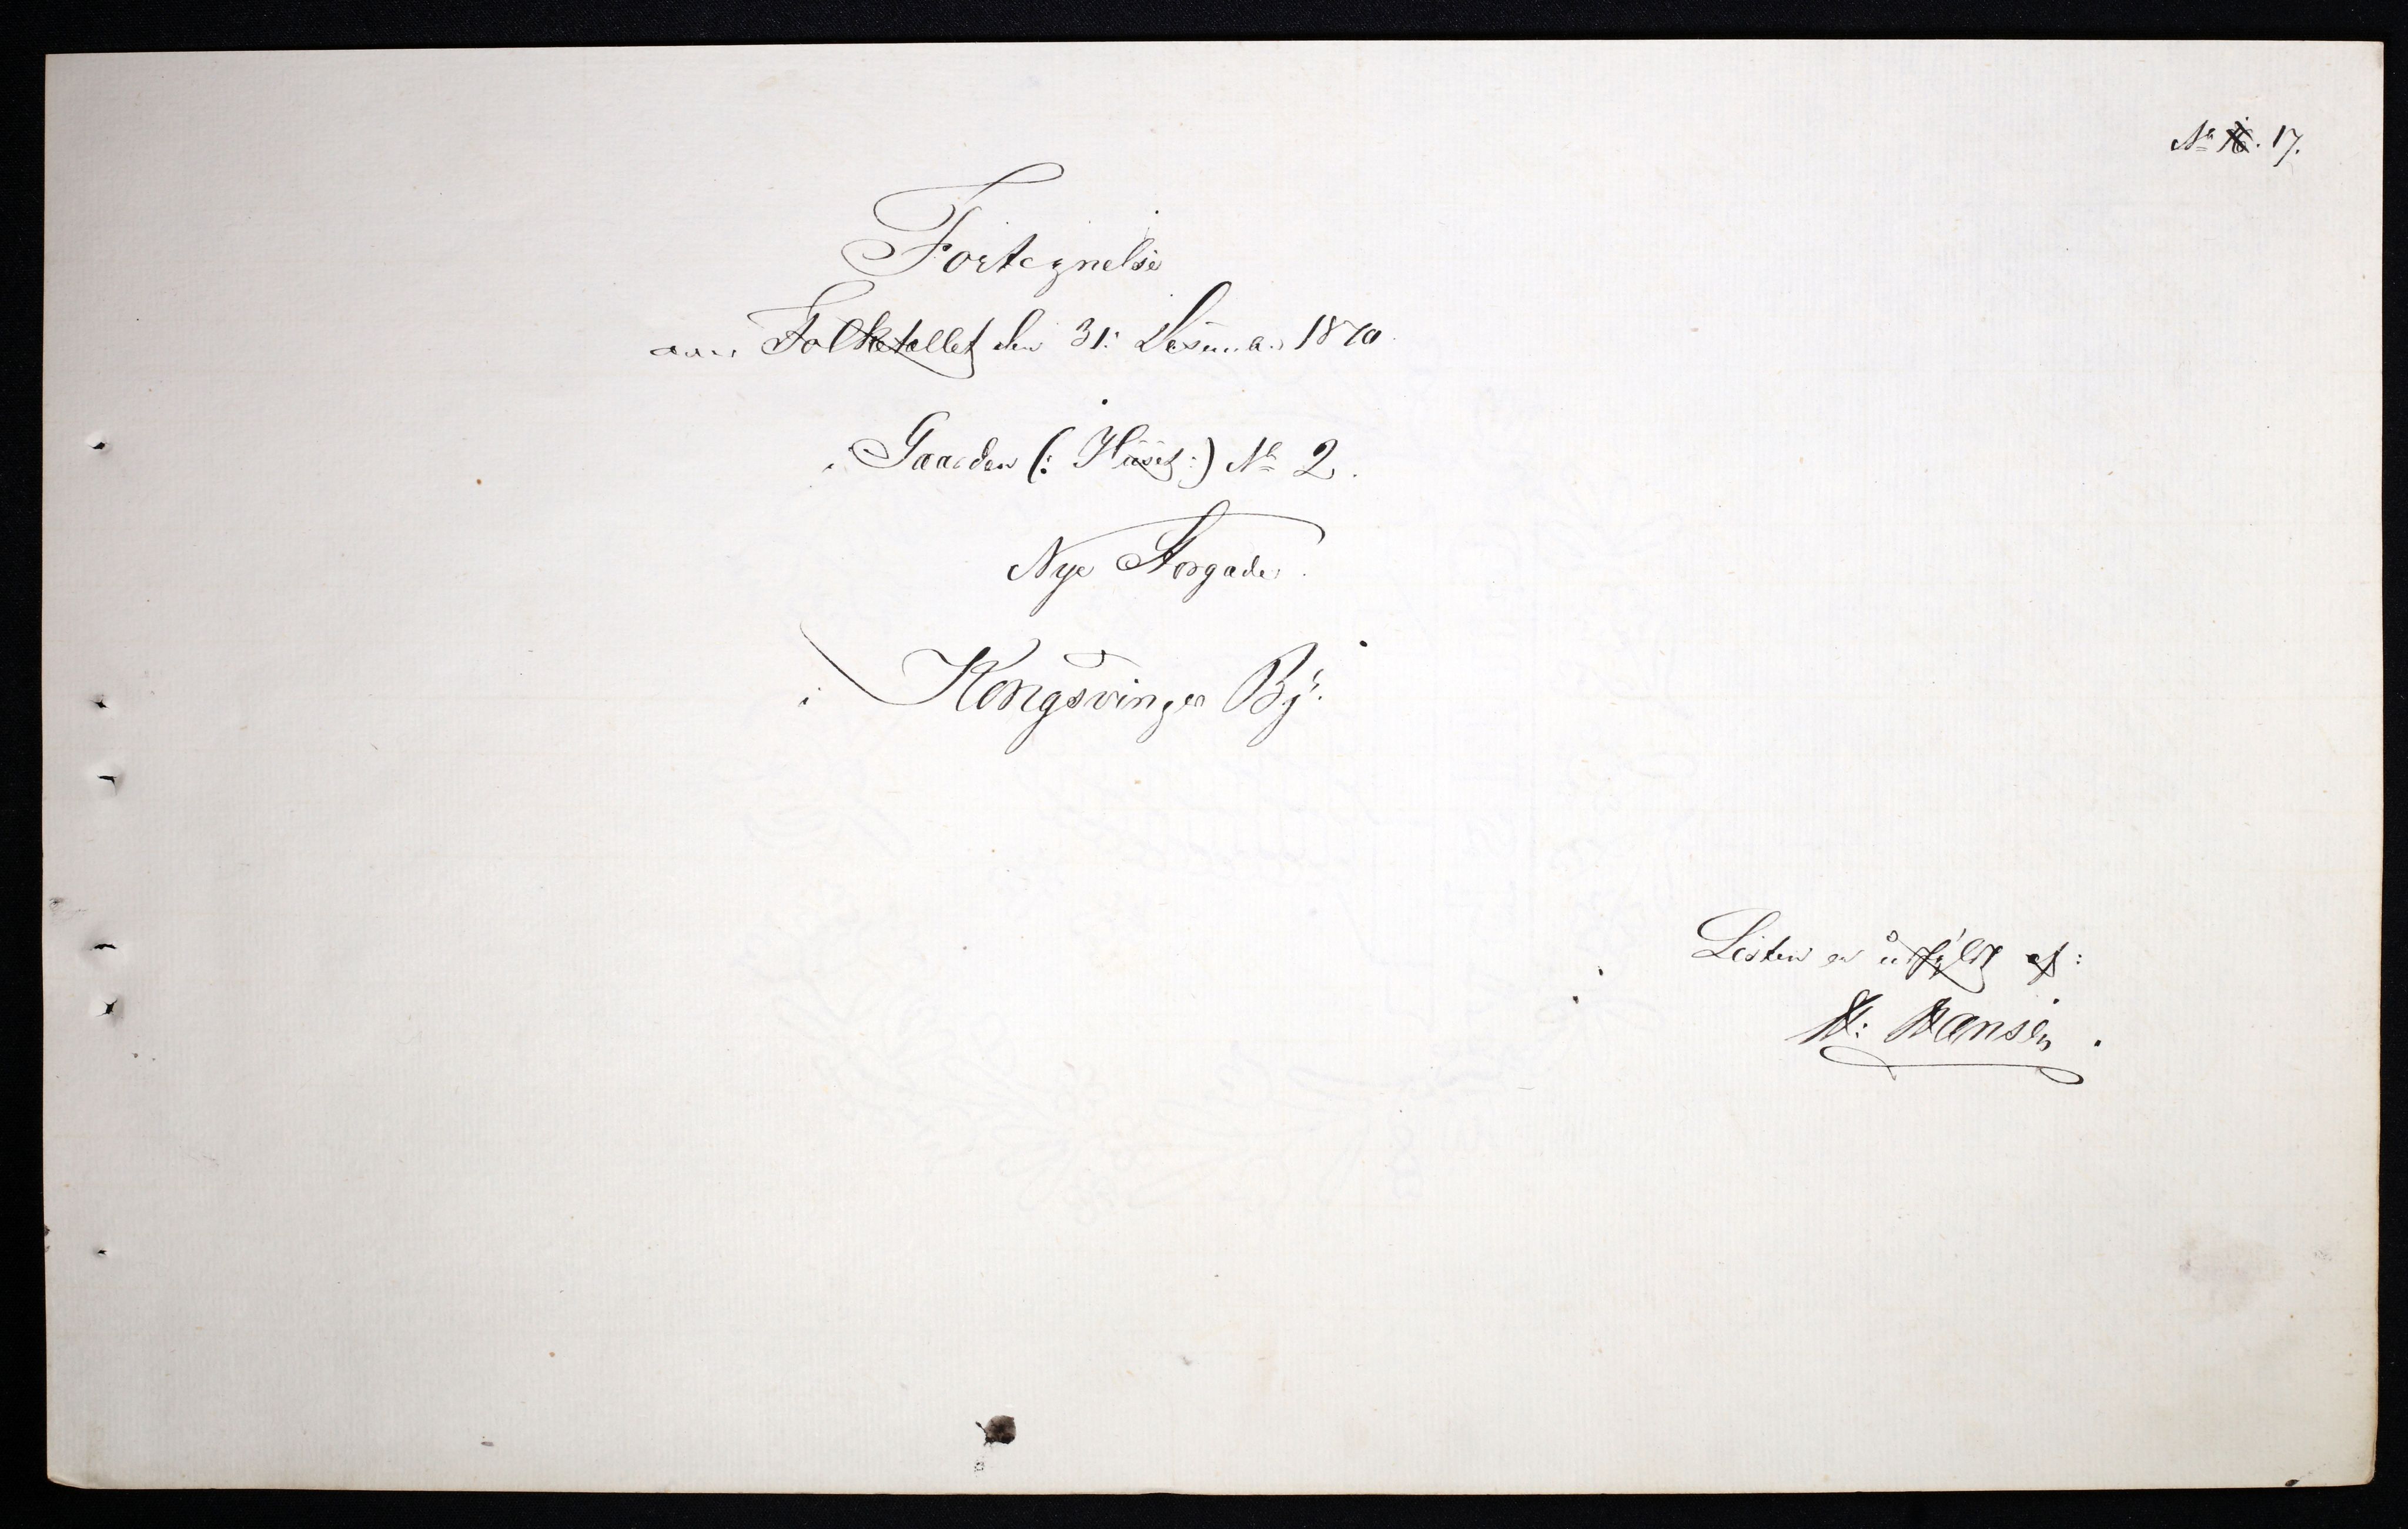 No 16. 17.
Fortegnelse
over Folketallet den 31. Desember 1870.
i Gaarden (: Huset :) No 2.
Nye Storgade.
i Kongsvinger By.
Listen er udfyldt af:
H: Hansen.